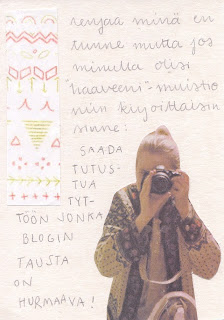 tenjaa minä en
tunne mutta jos
minulla olisi
"haaveeni"-muistio
niin kirjoittaisin
sinne:
SAADA
TUTUS-
TUA
TYT-
TÖÖN JONKA
BLOGIN
TAUSTA
ON
HURMAAVA!